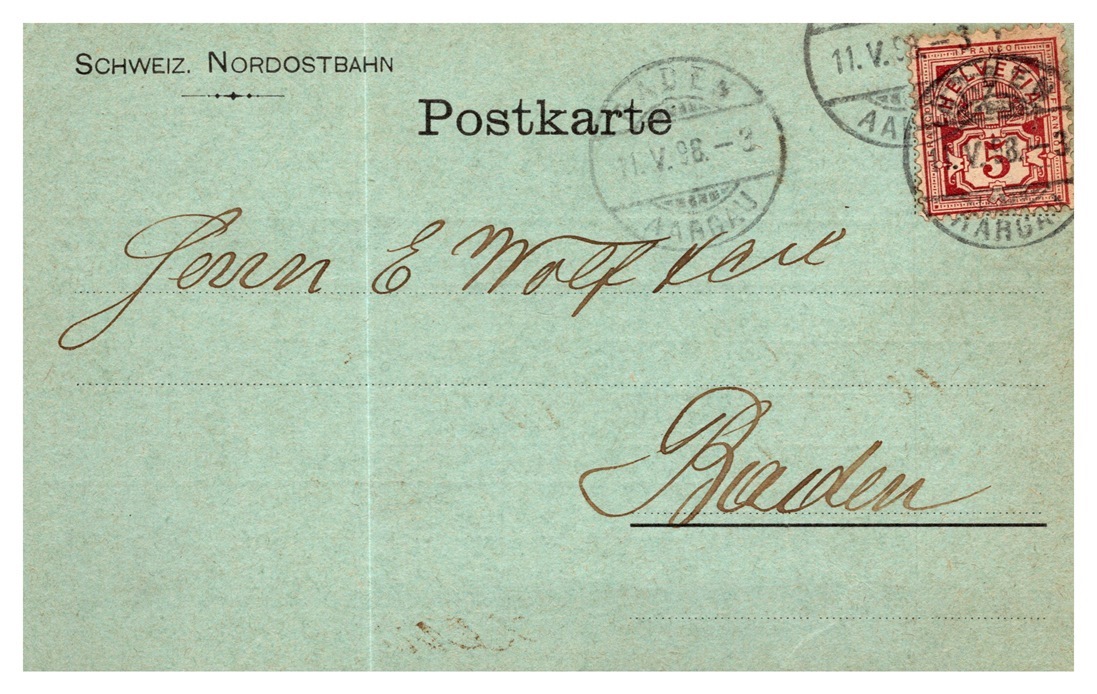 SCHWEIZ. NORDOSTBAHN
Postkarte
BADEN
11.V.98.–3.
AARGAU
11.V.98.–3
AA
FRANCO
HELVETIA
5
V.98.–3
AARGAU
Herrn E
Baden